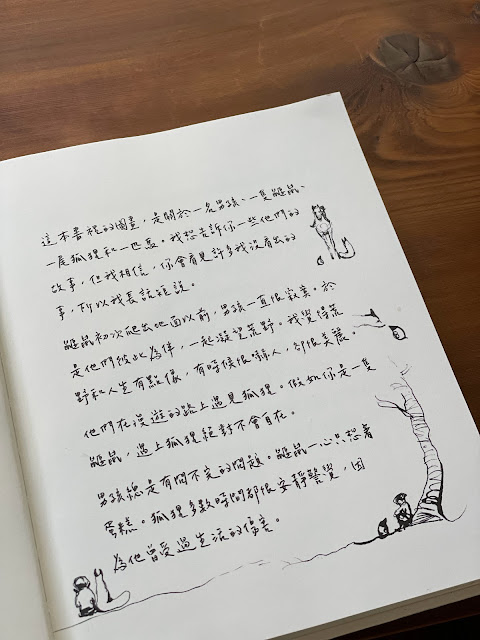 這本書裡的圖畫，是關於一名男孩、一隻鼴鼠、
一尾狐狸和一匹馬。我想告訴你一些他們的
故事，但我相信，你會看見許多我沒看出的
事，所以我長話短說。
鼴鼠初次爬出地面以前，男孩一直很寂寞。於
是他們彼此為伴，一起凝望荒野。我覺得荒
野和人生有點像，有時候很嚇人，卻很美麗。
他們在漫遊的路上遇見狐狸。假如你是一隻
鼴鼠，遇上狐狸絕對不會自在。
男孩總是有問不完的問題。鼴鼠一心只想著
蛋糕。狐狸多數時間都很安靜警覺，因
為他曾受過生活的傷害。